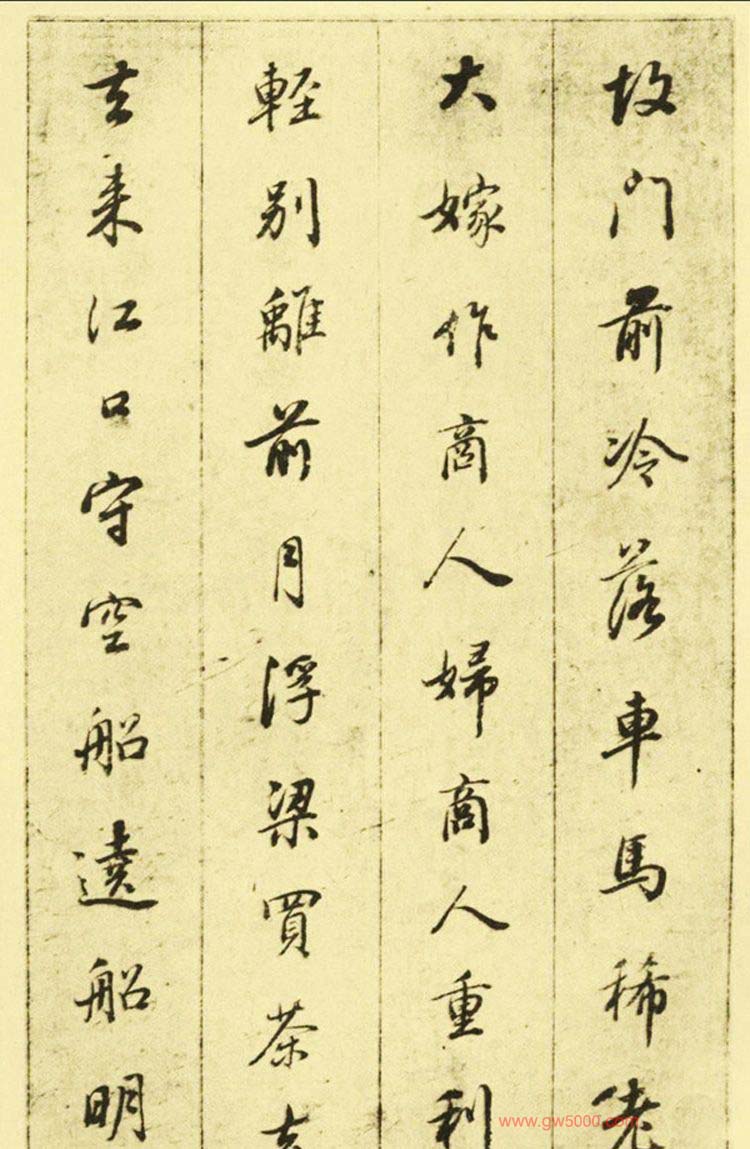 故門前冷落車馬稀老
大嫁作商人婦商人重利
輕別離前月浮梁買茶去
去来江口守空船遶船明
www.gw5000.com